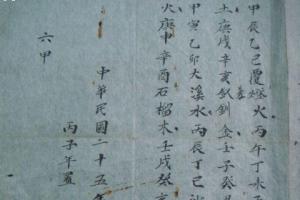 甲辰乙巳覆燈火丙午丁未天
土庚戌辛亥釵釧金壬子癸丑
甲寅乙卯大溪水丙辰丁巳沙
火庚申辛酉石榴木壬戌癸亥
中華民國二十五年
丙子年置
六甲